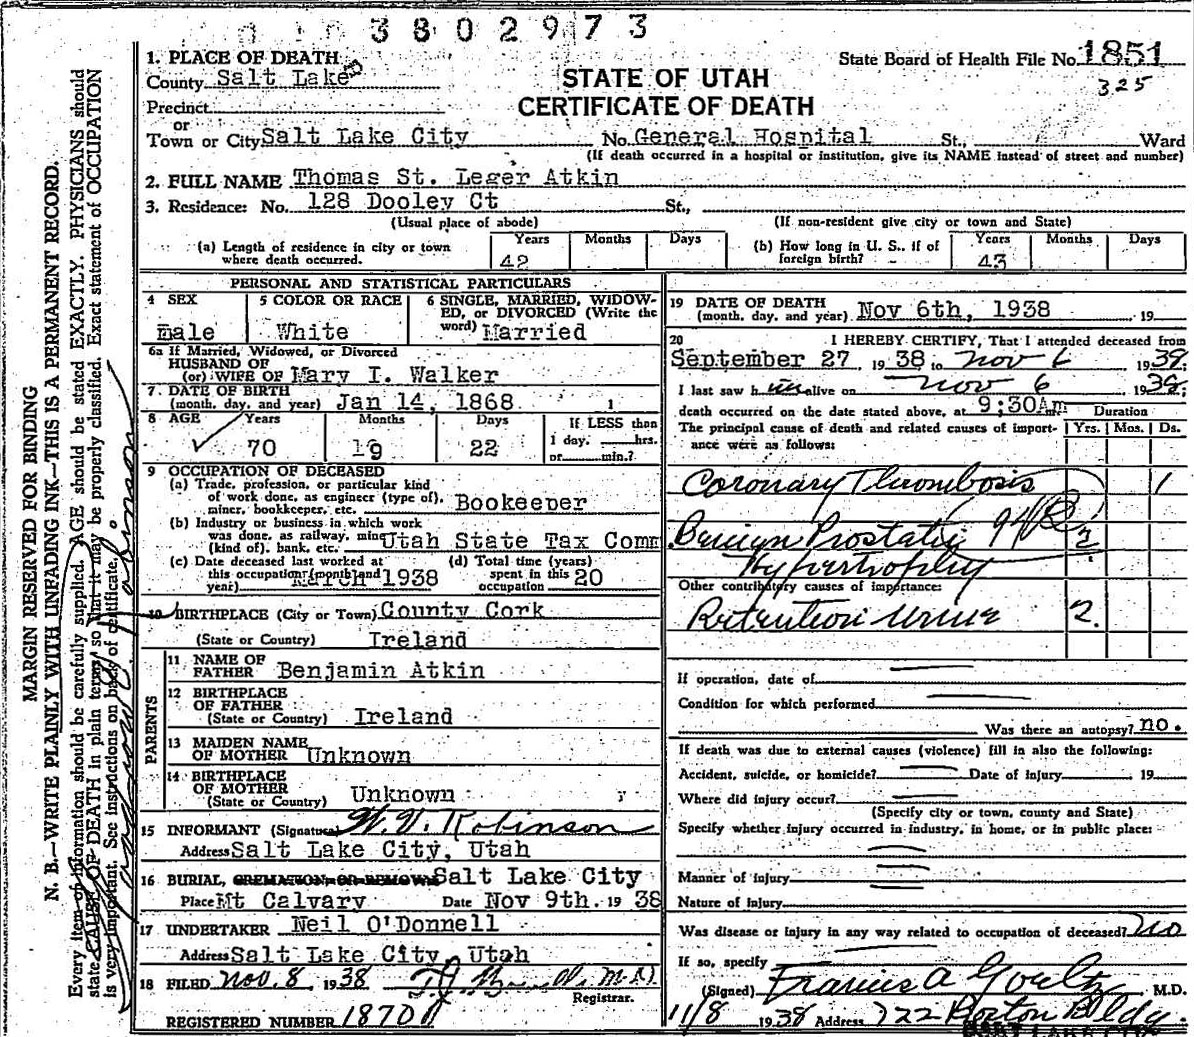 3802973
1. PLACE OF DEATH
County Salt Lake
State Board of Health File No. 1851
325
STATE OF UTAH
CERTIFICATE OF DEATH
Precinct
or
Town or City Salt Lake City No. General Hospital St., Ward
(If death occurred in a hospital or institution, give its NAME instead of street and number)
2. FULL NAME Thomas St. Leger Atkin
3. Residence: No. 128 Dooley Ct St.,
(Usual place of abode) (If non-resident give city or town and State)
(a) Length of residence in city or town where death occurred. Years 42 Months Days
(b) How long in U. S., if of foreign birth? Years 43 Months Days
PERSONAL AND STATISTICAL PARTICULARS
4 SEX Male
5 COLOR OR RACE White
6 SINGLE, MARRIED, WIDOWED, or DIVORCED (Write the word) Married
6a If Married, Widowed, or Divorced
HUSBAND OF
(or) WIFE OF Mary I. Walker
7 DATE OF BIRTH
(month, day, and year) Jan 14, 1868
8 AGE Years 70 Months 19 Days 22 If LESS than 1 day, hrs. or min.?
9 OCCUPATION OF DECEASED
(a) Trade, profession, or particular kind
of work done, as engineer (type of),
miner, bookkeeper, etc. Bookeeper
(b) Industry or business in which work
was done, as railway, mine
(kind of), bank, etc. Utah State Tax Comm
(c) Date deceased last worked at
this occupation (month and
year) March 1938
(d) Total time (years)
spent in this
occupation 20
10 BIRTHPLACE (City or Town) County Cork
(State or Country) Ireland
PARENTS
11 NAME OF
FATHER Benjamin Atkin
12 BIRTHPLACE
OF FATHER
(State or Country) Ireland
13 MAIDEN NAME
OF MOTHER Unknown
14 BIRTHPLACE
OF MOTHER
(State or Country) Unknown
15 INFORMANT (Signature) W. V. Robinson
Address Salt Lake City, Utah
16 BURIAL, CREMATION OR REMOVAL Salt Lake City
Place Mt Calvary Date Nov 9th. 1938
17 UNDERTAKER Neil O'Donnell
Address Salt Lake City, Utah
18 FILED Nov. 8, 1938 M.D.
Registrar.
REGISTERED NUMBER 1870
19 DATE OF DEATH
(month, day, and year) Nov 6th, 1938 19
20 I HEREBY CERTIFY, That I attended deceased from
September 27, 1938 to Nov 6 1938;
I last saw him alive on Nov 6 1938;
death occurred on the date stated above, at 9:30Am Duration
The principal cause of death and related causes of importance were as follows: Yrs. Mos. Ds.
Coronary Thrombosis 1
Benign Prostatic 94B 2
Hypertrophy
Other contributory causes of importance:
Retention Urine 2.
If operation, date of
Condition for which performed
Was there an autopsy? no.
If death was due to external causes (violence) fill in also the following:
Accident, suicide, or homicide? Date of injury 19
Where did injury occur?
(Specify city or town, county and State)
Specify whether injury occurred in industry, in home, or in public place:
Manner of injury
Nature of injury
Was disease or injury in any way related to occupation of deceased? no
If so, specify
(Signed) Francis A Goeltz, M.D.
11/8 1938 Address 722 Boston Bldg.
SALT LAKE CITY
MARGIN RESERVED FOR BINDING
N. B.—WRITE PLAINLY WITH UNFADING INK—THIS IS A PERMANENT RECORD.
Every item of information should be carefully supplied. AGE should be stated EXACTLY. PHYSICIANS should
state CAUSE OF DEATH in plain terms, so that it may be properly classified. Exact statement of OCCUPATION
is very important. See instructions on back of certificate.